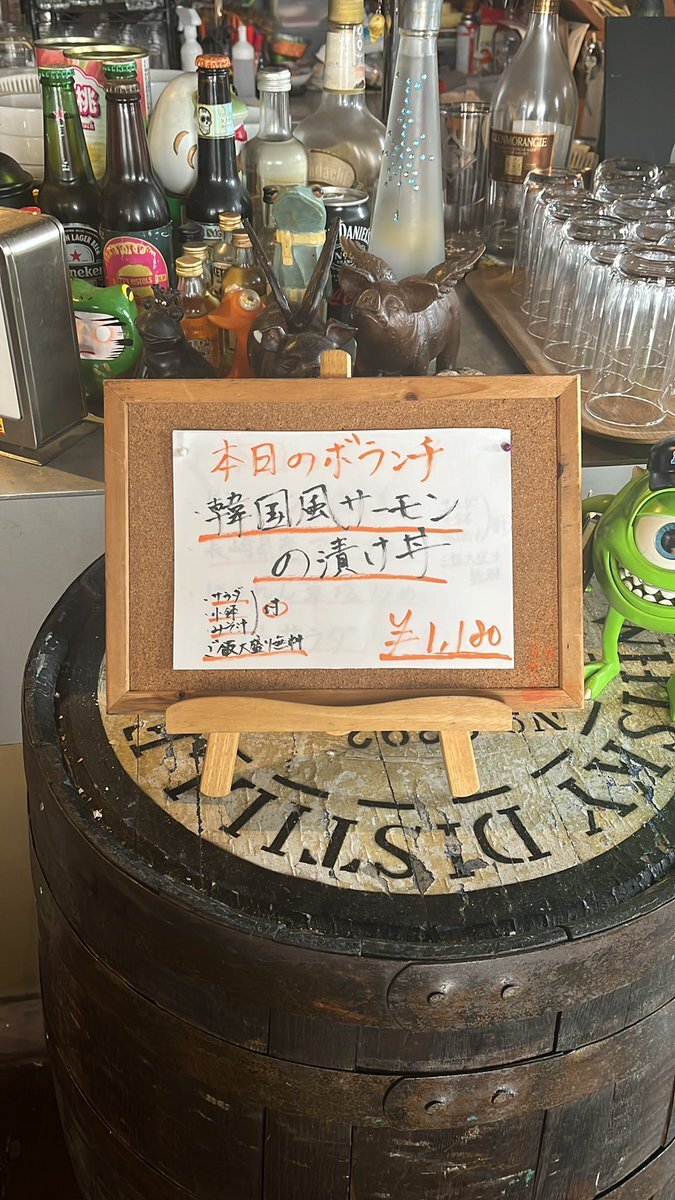 本日のボランチ
韓国風サーモン
の漬け丼
・サラダ
・小鉢
・みそ汁
付
ご飯大盛り無料
¥1,180
Heineken
GLENMORANGIE
DISTILL